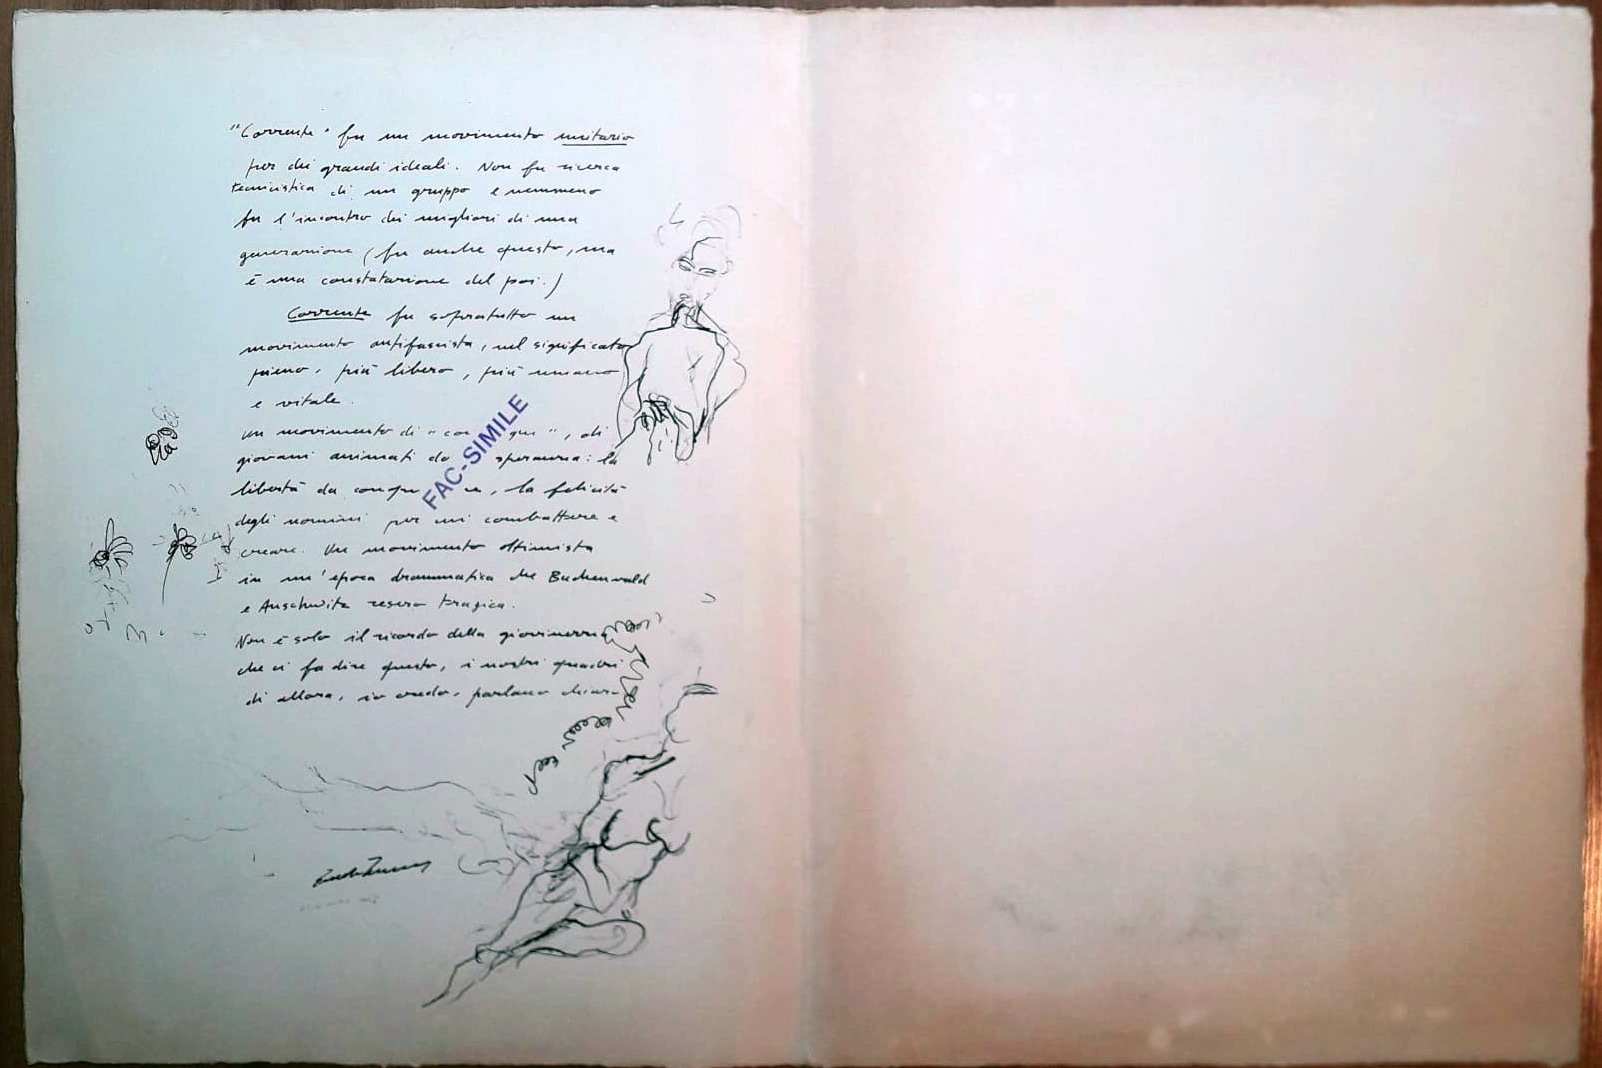 "Corrente" fu un movimento unitario
per dei grandi ideali. Non fu ricerca
tecnicistica di un gruppo e nemmeno
fu l'incontro dei migliori di una
generazione (fu anche questo, ma
è una constatazione del poi.)
Corrente fu sopratutto un
movimento antifascista, nel significato
pieno, più libero, più umano
e vitale.
Un movimento di " ", di
giovani animati da speranza: la
libertà da, la felicità
degli uomini per cui combattere e
creare. Un movimento ottimista
in un'epoca drammatica che Buchenwald
e Auschwitz resero tragica.
Non è solo il ricordo della giovinezza
che ci fa dire questo, i nostri quadri
di allora, io credo, parlano chiaro
FAC-SIMILE